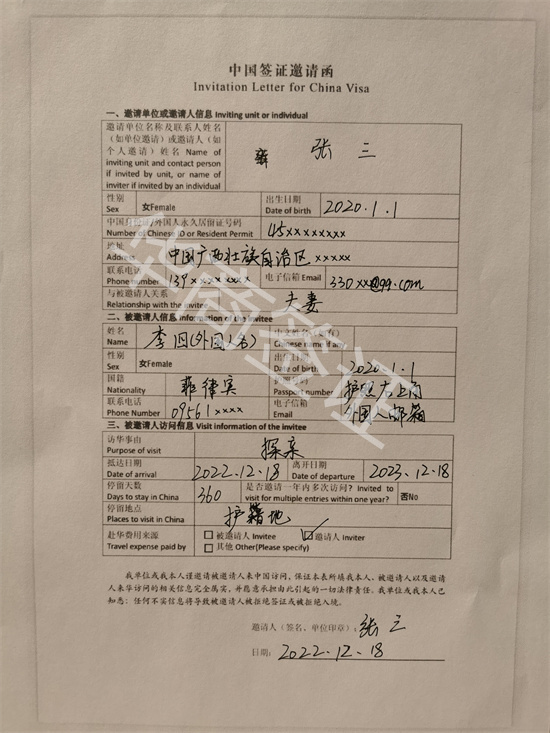 中国签证邀请函
Invitation Letter for China Visa
一、邀请单位或邀请人信息 Inviting unit or individual
邀请单位名称及联系人姓名
(如单位邀请)或邀请人(如
个人邀请)姓名 Name of
inviting unit and contact person
if invited by unit, or name of
inviter if invited by an individual
张三
性别
Sex
女Female
出生日期
Date of birth
2020.1.1
中国身份证/外国人永久居留证号码
Number of Chinese ID or Resident Permit
45xxxxxxxx
地址
Address
中国广西壮族自治区xxxxx
联系电话
Phone number
139xxxxxxxx
电子信箱 Email
330xx@qq.com
与被邀请人关系
Relationship with the invitee
夫妻
二、被邀请人信息 Information of the invitee
姓名
Name
李四(外国人名)
中文姓名(如有)
Chinese name if any
性别
Sex
女Female
出生日期
Date of birth
2020.1.1
国籍
Nationality
菲律宾
护照号码
Passport number
护照右上角
联系电话
Phone Number
09561xxxx
电子信箱
Email
外国人邮箱
三、被邀请人访问信息 Visit information of the invitee
访华事由
Purpose of visit
探亲
抵达日期
Date of arrival
2022.12.18
离开日期
Date of departure
2023.12.18
停留天数
Days to stay in China
360
是否邀请一年内多次访问? Invited to
visit for multiple entries within one year?
否No
停留地点
Places to visit in China
护籍地
赴华费用来源
Travel expense paid by
☐ 被邀请人 Invitee
☑ 邀请人 Inviter
☐ 其他 Other(Please specify)
我单位或我本人谨邀请被邀请人来中国访问,保证本表所填我本人、被邀请人以及邀请
人来华访问的相关信息完全属实,并愿意承担由此引起的一切法律责任。我单位或我本人已
知悉:任何不实信息将导致被邀请人被拒绝签证或被拒绝入境。
邀请人(签名、单位印章):张三
日期:2022.12.18
华商签证